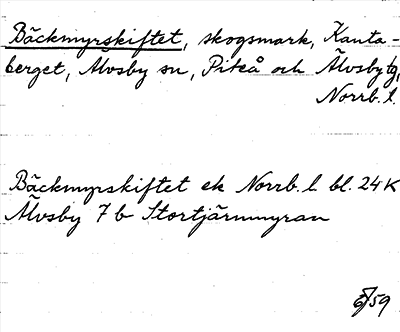 Bäckmyrskiftet, skogsmark, Kanta-
berget, Älvsby sn, Piteå och Älvsby tg,
Norrb. l.
Bäckmyrskiftet ek Norrb. l bl. 24 K
Älvsby 7 b Stortjärnmyran
59